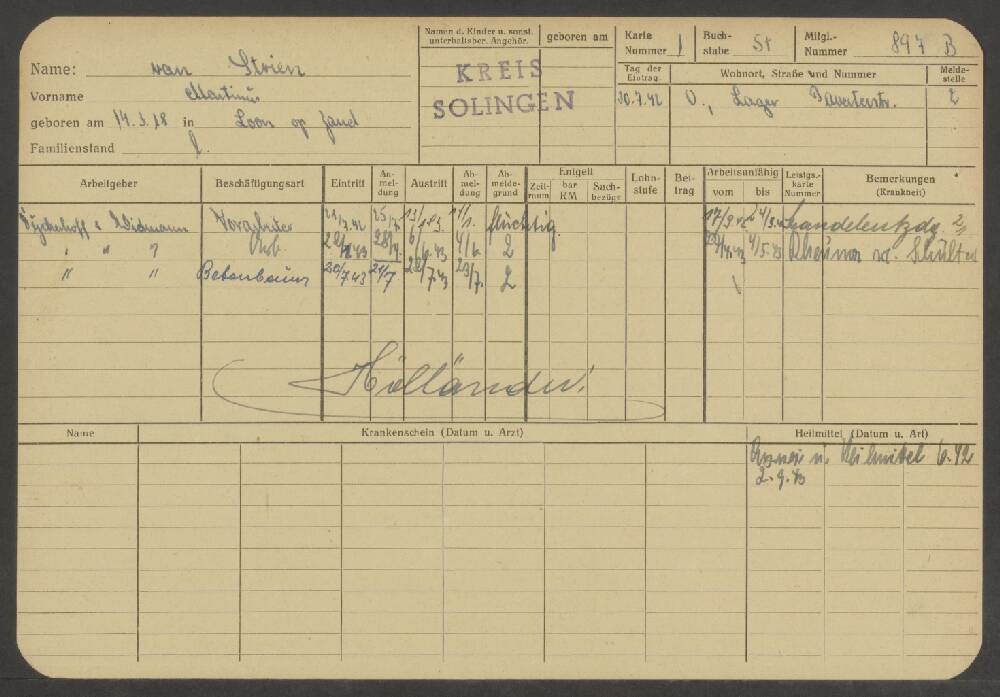 Name: van Strien
Vorname Martinus
geboren am 14.3.18 in Loon op Zand
Familienstand l.
Namen d. Kinder u. sonst. unterhaltsber. Angehör. geboren am
KREIS
SOLINGEN
Karte Nummer 1 Buchstabe St Mitgl.-Nummer 897 B
Tag der Eintrag. Wohnort, Straße und Nummer Meldestelle
30.7.42 O., Lager 2
Arbeitgeber Beschäftigungsart Eintritt An-meldung Austritt Ab-meldung Ab-meldegrund Entgelt Zeitraum bar RM Sachbezüge Lohnstufe Beitrag Arbeitsunfähig vom bis Leistgs.-karte Nummer Bemerkungen (Krankheit)
Dyckerhoff & Widmann Vorarbeiter 25/7. 13/1.43 17/1. flüchtig 17/9.42 24/9.42
" " " Arb. 28/4. 6/6.43 4/6. 2 4/5.43 Rheuma
" " Betonbauer 20/7.43 21/7 22/7.43 23/7. 2
Holländer!
Name Krankenschein (Datum u. Arzt) Heilmittel (Datum u. Art)
Arznei u. Heilmittel 6.42
2.9.43